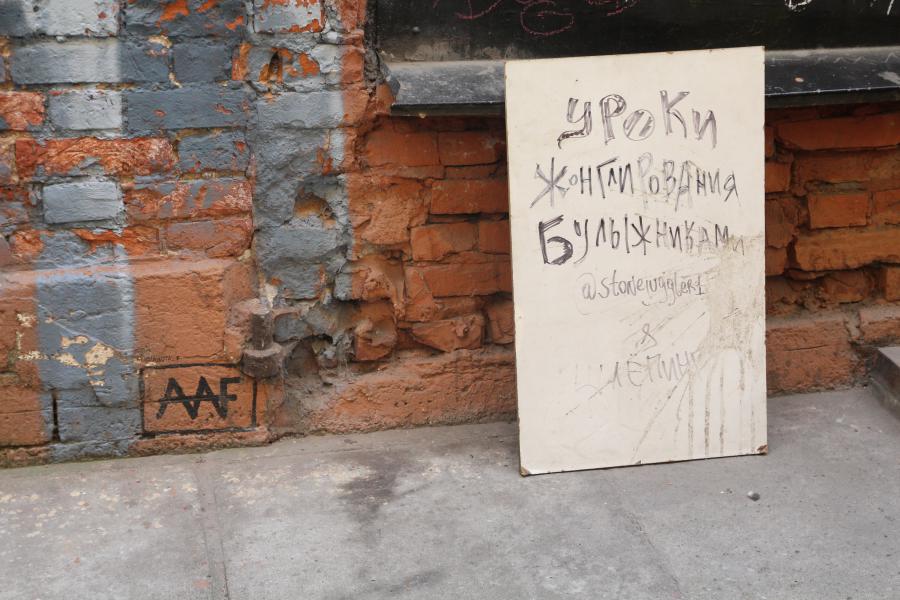 уроки
жонглирования
Булыжниками
@stonejugglers
&
AAF